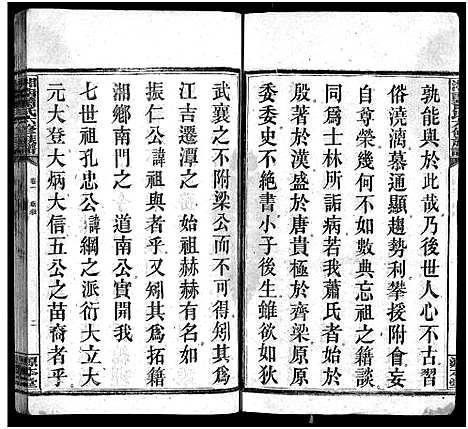 孰能與於此哉乃後世人心不古習
俗澆漓慕通顯趨勢利攀援附會以
自尊榮幾何不如數典忘祖之籍談
同為士林所詬病若我蕭氏者始於
殷著於漢盛於唐貴極於齊梁原原
委委史不絕書小子後生雖欲如狄
武襄之不附梁公而不可得矧其為
江吉遷潭之　始祖赫赫有名如
振仁公諱祖興者乎又矧其為拓籍
湘鄉　道南公實開我
七世祖孔忠公諱綱之派衍大立大
元大登大炳大信五公之苗裔者乎
卷一
二